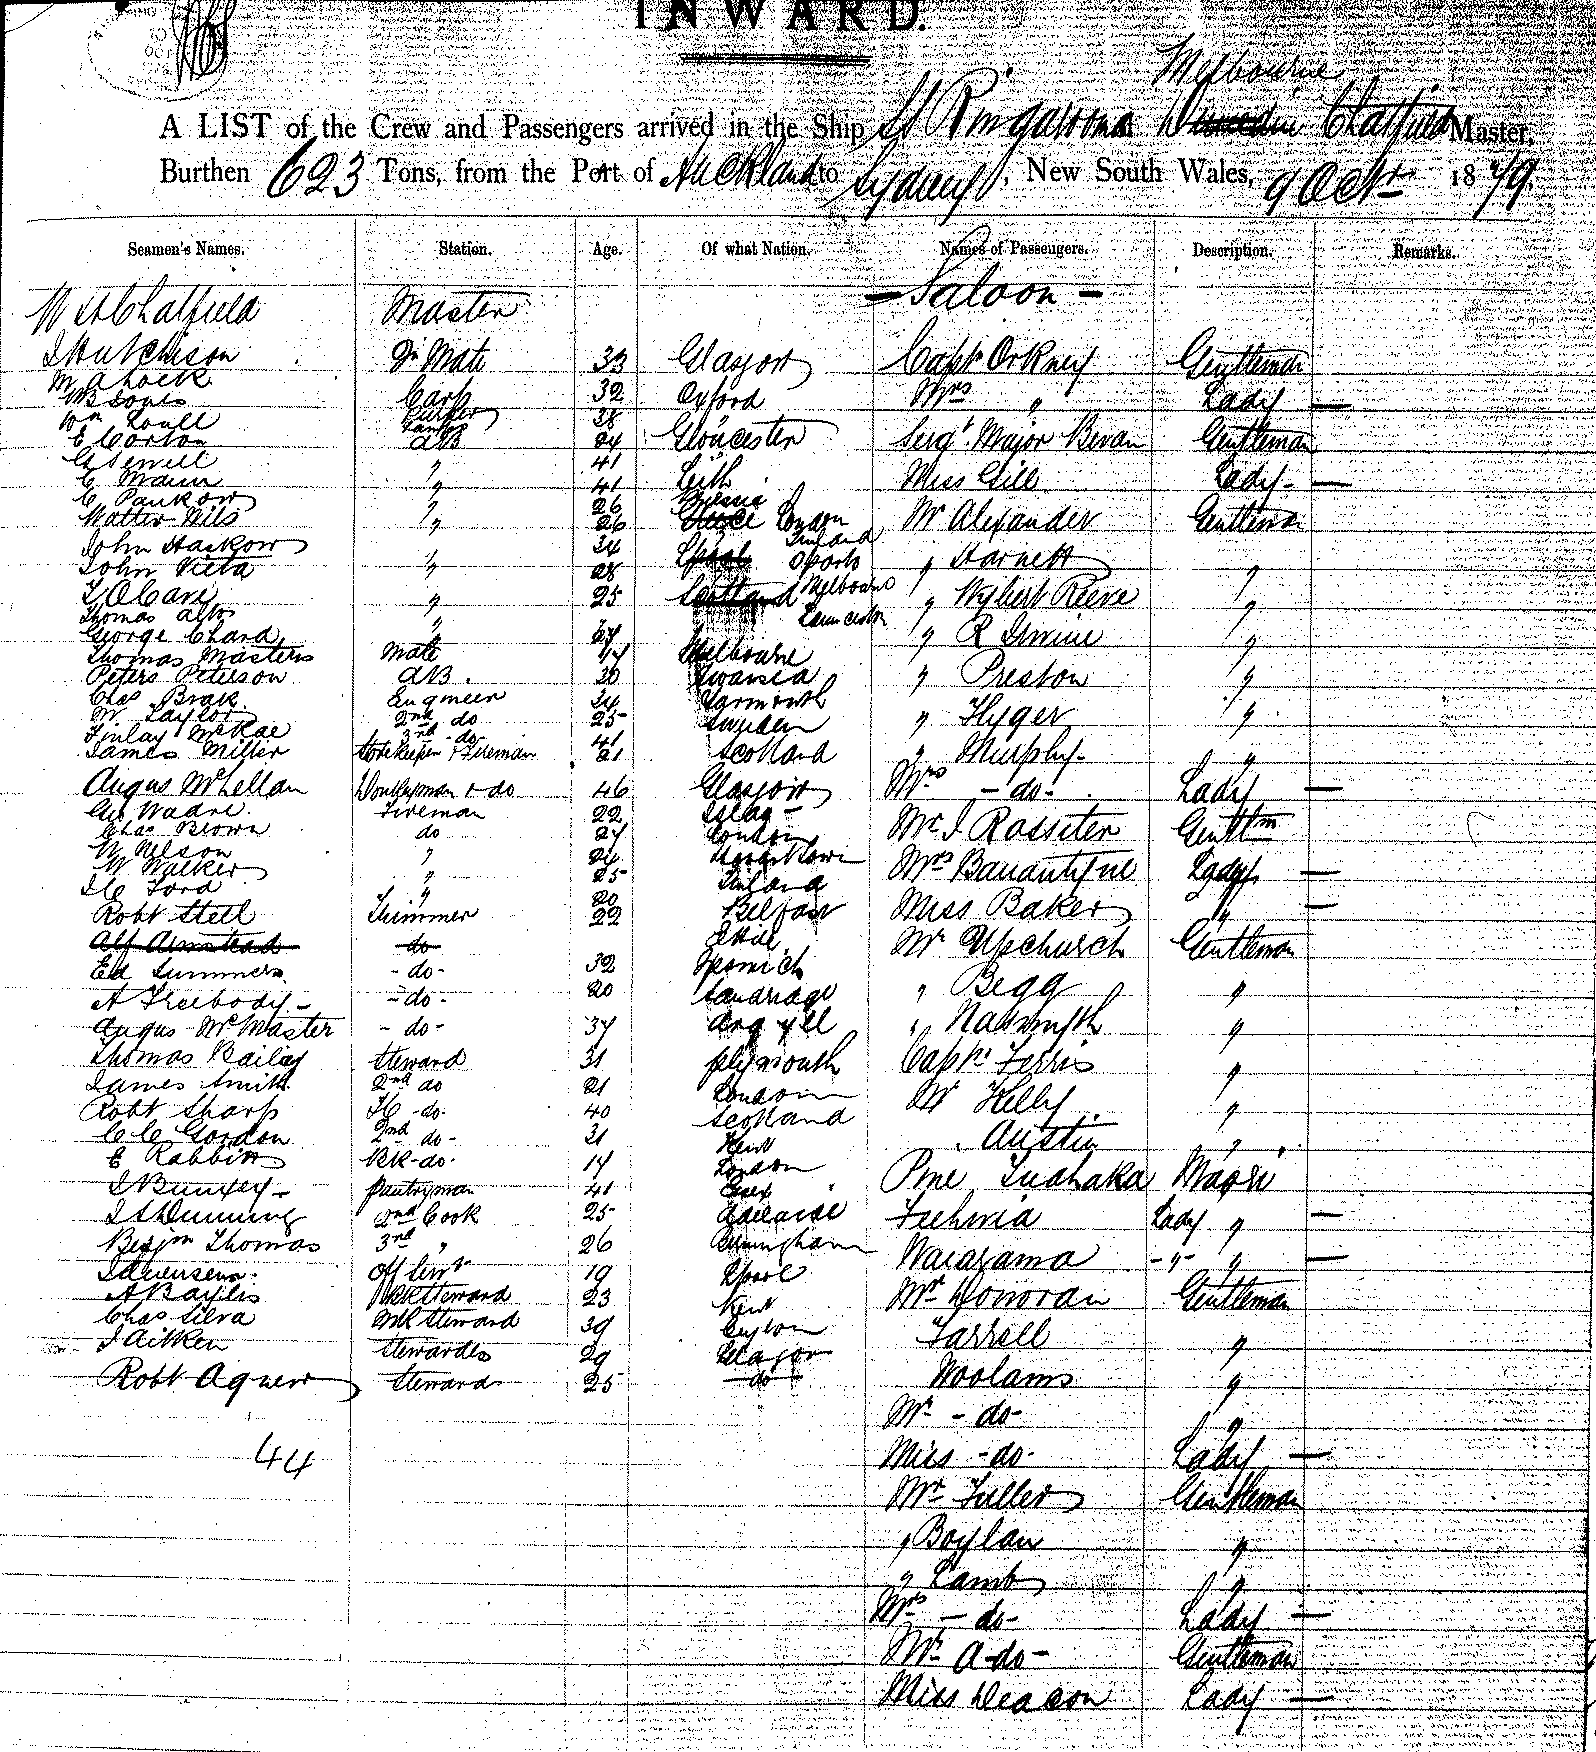 INWARD.
A LIST of the Crew and Passengers arrived in the Ship SS Ringarooma of Melbourne Dunedin Chatfield Master,
Burthen 623 Tons, from the Port of Auckland to Sydney, New South Wales, 9 Oct 1879.
Seamen's Names. Station. Age. Of what Nation. Names of Passengers. Description. Remarks.
— Saloon —
Chatfield Master
Hutchison Mate 33 Glasgow Capt Orkney Gentleman
Carp 32 Oxford Mrs " Lady —
38
E Corton AB 24 Gloucester Sergt. Major Bevan Gentleman
G Sewell " 41
E Mann " 41 Leith Miss Gill Lady —
C Pankow " 26 Prussia
Walter " 26 London Mr Alexander Gentleman
John 34 Finland
John " 28 Oporto " Harnett "
25 Scotland Melbourne " Wybert Reeve "
Thomas " Launceston
George Chard " " R Irwine "
Thomas Masters Mate Melbourne
Peters Peterson AB. 30 Swansea " Preston "
Chas Engineer 34 Yarmouth
W. Taylor 2nd do 25 Sweden " Hyger "
Finlay McRae 3rd do 41
James Miller Storekeeper & Fireman 21 Scotland " Murphy "
Angus McLellan Donkeyman & do 46 Glasgow Mrs - do - Lady —
Fireman 22 Islay
Chas Brown do 27 London Mr J. Rossiter Gentlm
W Nelson " 24
W Walker " 25 Finland Mrs Banantyne Lady —
Ford " 20
Robt Steel Trimmer 22 Belfast Miss Baker " —
Alf do Mr Upchurch Gentleman
Ed Summers - do - 32 Ipswich
A Freebody - do - 20 Sandridge " Begg "
Angus McMaster - do - 37 Argyll " Nasmyth "
Thomas Bailey Steward 31 Plymouth Capt. Ferris "
James Smith 2nd do 21 London
Robt Sharp do 40 Scotland Mr Kelly "
C C Gordon 2nd do 31 Kent " Austin "
E Rabbitts do 17 London
Pantryman 41 Essex Pine Tuahaka Maori
Dunning 2nd Cook 25 Adelaide Lady " —
Benjm Thomas 3rd " 26 Birmingham Waiarama " " —
19
A Baylis Steward 23 Kent Mr Donovan Gentleman
Chas Silva Steward 39 Ceylon
J Aitken Stewardess 29 Glasgow Farrell "
Robt Agnew Steward 25 do Woolams "
Mr - do - "
44
Miss - do - Lady —
Mr Fuller Gentleman
" Boylan "
" Lamb "
Mrs - do - Lady —
Mr A - do - Gentleman
Miss Deacon Lady —